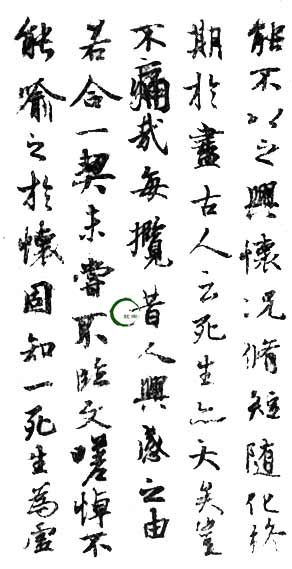 能不以之興懷况脩短随化終
期於盡古人云死生亦大矣豈
不痛哉每攬昔人興感之由
若合一契未嘗不臨文嗟悼不
能喻之於懷固知一死生為虛